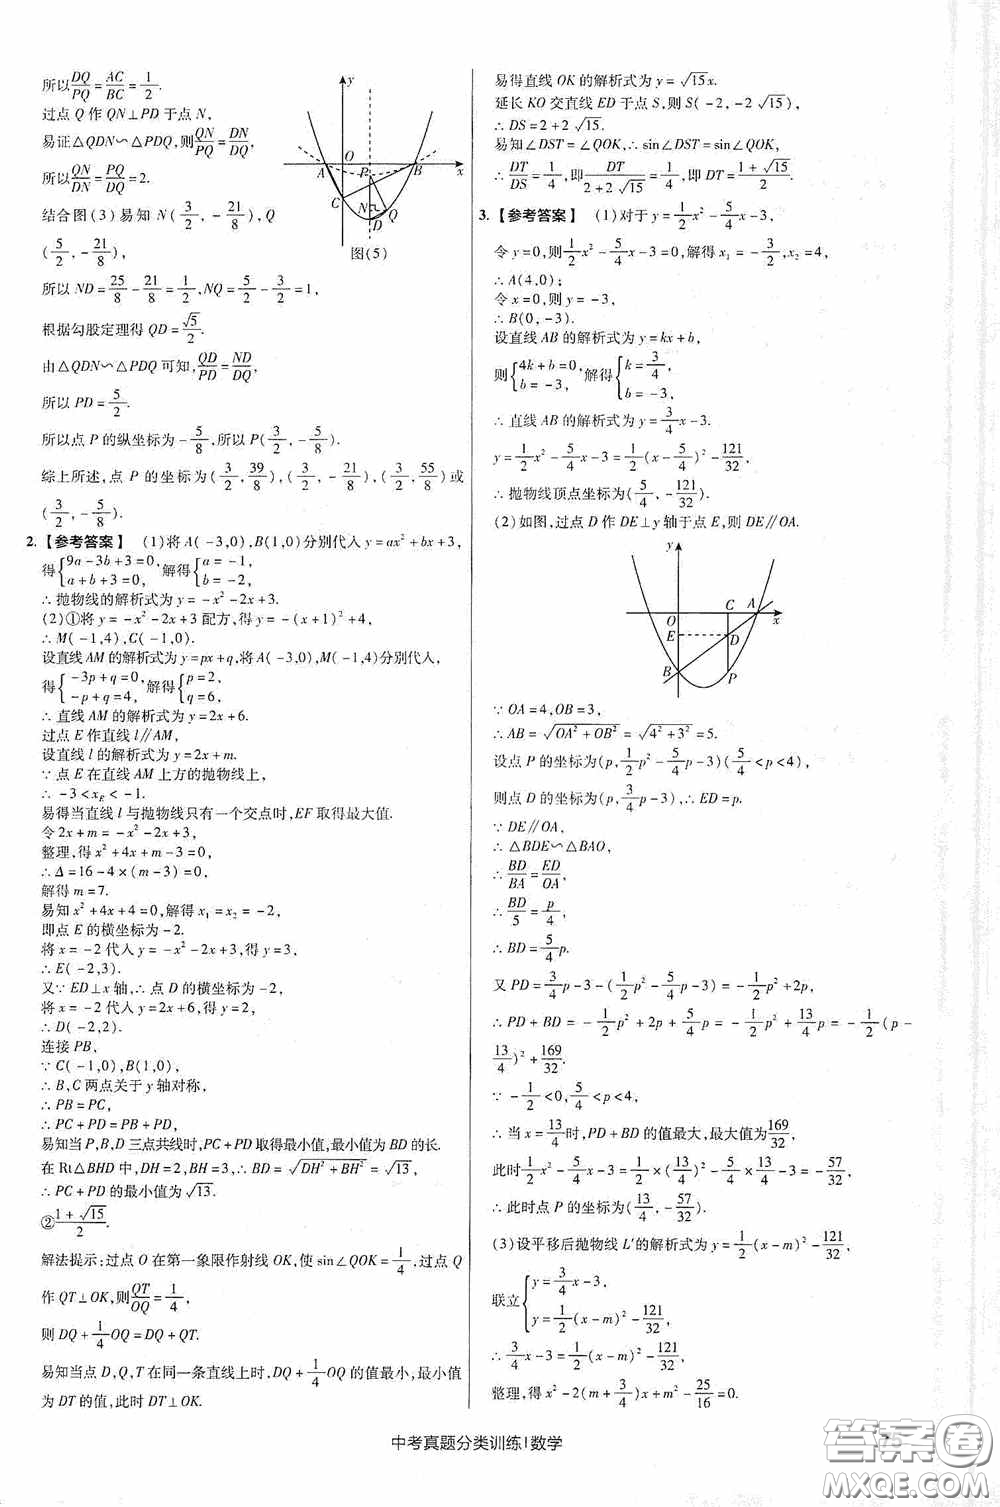 所以DQ/PQ=AC/BC=1/2.
过点 Q 作 QN⊥PD 于点 N,
易证△QDN∽△PDQ,则QN/PQ=DN/DQ,
所以QN/DN=PQ/DQ=2.
结合图(3)易知 N(3/2,-21/8),Q
(5/2,-21/8),
y
O
A
B
x
P
C
N
Q
D
图(5)
所以 ND=25/8-21/8=1/2,NQ=5/2-3/2=1,
根据勾股定理得 QD=√5/2.
由△QDN∽△PDQ 可知,QD/PD=ND/DQ,
所以 PD=5/2.
所以点 P 的纵坐标为-5/8,所以 P(3/2,-5/8).
综上所述,点 P 的坐标为(3/2,39/8),(3/2,-21/8),(3/2,55/8)或
(3/2,-5/8).
2.【参考答案】 (1)将 A(-3,0),B(1,0)分别代入 y=ax²+bx+3,
得{9a-3b+3=0, a+b+3=0, 解得{a=-1, b=-2,
∴抛物线的解析式为 y=-x²-2x+3.
(2)①将 y=-x²-2x+3 配方,得 y=-(x+1)²+4,
∴M(-1,4),C(-1,0).
设直线 AM 的解析式为 y=px+q,将 A(-3,0),M(-1,4)分别代入,
得{-3p+q=0, -p+q=4, 解得{p=2, q=6,
∴直线 AM 的解析式为 y=2x+6.
过点 E 作直线 l∥AM,
设直线 l 的解析式为 y=2x+m.
∵点 E 在直线 AM 上方的抛物线上,
∴-3<xE<-1.
易得当直线 l 与抛物线只有一个交点时,EF 取得最大值.
令 2x+m=-x²-2x+3,
整理,得 x²+4x+m-3=0,
∴Δ=16-4×(m-3)=0,
解得 m=7.
易知 x²+4x+4=0,解得 x₁=x₂=-2,
即点 E 的横坐标为-2.
将 x=-2 代入 y=-x²-2x+3,得 y=3,
∴E(-2,3).
又∵ED⊥x 轴,∴点 D 的横坐标为-2,
将 x=-2 代入 y=2x+6,得 y=2,
∴D(-2,2).
连接 PB,
∵C(-1,0),B(1,0),
∴B,C 两点关于 y 轴对称,
∴PB=PC,
∴PC+PD=PB+PD,
易知当 P,B,D 三点共线时,PC+PD 取得最小值,最小值为 BD 的长.
在 Rt△BHD 中,DH=2,BH=3,∴BD=√(DH²+BH²)=√13,
∴PC+PD 的最小值为√13.
②(1+√15)/2.
解法提示:过点 O 在第一象限作射线 OK,使 sin∠QOK=1/4,过点 Q
作 QT⊥OK,则QT/OQ=1/4,
则 DQ+1/4OQ=DQ+QT.
易知当点 D,Q,T 在同一条直线上时,DQ+1/4OQ 的值最小,最小值
为 DT 的值,此时 DT⊥OK.
易得直线 OK 的解析式为 y=√15x.
延长 KO 交直线 ED 于点 S,则 S(-2,-2√15),
∴DS=2+2√15.
易知∠DST=∠QOK,∴sin∠DST=sin∠QOK,
∴DT/DS=1/4,即DT/(2+2√15)=1/4,即 DT=(1+√15)/2.
3.【参考答案】 (1)对于 y=1/2x²-5/4x-3,
令 y=0,则1/2x²-5/4x-3=0,解得 x₁=-3/2,x₂=4,
∴A(4,0);
令 x=0,则 y=-3,
∴B(0,-3).
设直线 AB 的解析式为 y=kx+b,
则{4k+b=0, b=-3, 解得{k=3/4, b=-3,
∴直线 AB 的解析式为 y=3/4x-3.
y=1/2x²-5/4x-3=1/2(x-5/4)²-121/32,
∴抛物线顶点坐标为(5/4,-121/32).
(2)如图,过点 D 作 DE⊥y 轴于点 E,则 DE∥OA.
y
O
C
A
x
E
D
B
P
∵OA=4,OB=3,
∴AB=√(OA²+OB²)=√(4²+3²)=5.
设点 P 的坐标为(p,1/2p²-5/4p-3)(5/4<p<4),
则点 D 的坐标为(p,3/4p-3),∴ED=p.
∵DE∥OA,
∴△BDE∽△BAO,
∴BD/BA=ED/OA,
∴BD/5=p/4,
∴BD=5/4p.
又 PD=3/4p-3-(1/2p²-5/4p-3)=-1/2p²+2p,
∴PD+BD=-1/2p²+2p+5/4p=-1/2p²+13/4p=-1/2(p-
13/4)²+169/32.
∵-1/2<0,5/4<p<4,
∴当 x=13/4时,PD+BD 的值最大,最大值为169/32,
此时1/2x²-5/4x-3=1/2×(13/4)²-5/4×13/4-3=-57/32,
∴此时点 P 的坐标为(13/4,-57/32).
(3)设平移后抛物线 L′的解析式为 y=1/2(x-m)²-121/32,
联立{y=3/4x-3, y=1/2(x-m)²-121/32,
∴3/4x-3=1/2(x-m)²-121/32,
整理,得 x²-2(m+3/4)x+m²-25/16=0.
中考真题分类训练|数学
答案圈
MXQE.COM